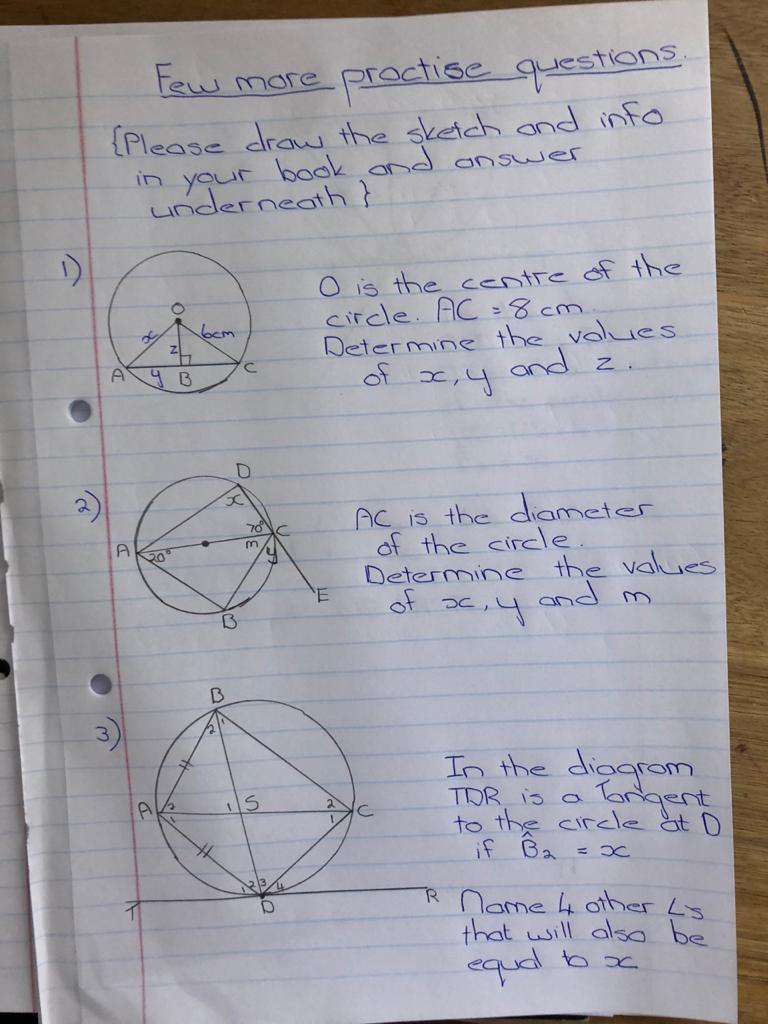 Few more practise questions.
{Please draw the sketch and info
in your book and answer
underneath}
1)
O
x
6cm
z
A
y
B
C
O is the centre of the
circle. AC = 8 cm
Determine the values
of x, y and z.
2)
D
x
70°
C
A
20°
m
y
B
E
AC is the diameter
of the circle.
Determine the values
of x, y and m
3)
B
2 1
A
2
1
1
S
2
1
C
1 2 3 4
T
D
R
In the diagram
TDR is a Tangent
to the circle at D
if B̂₂ = x
Name 4 other ∠s
that will also be
equal to x